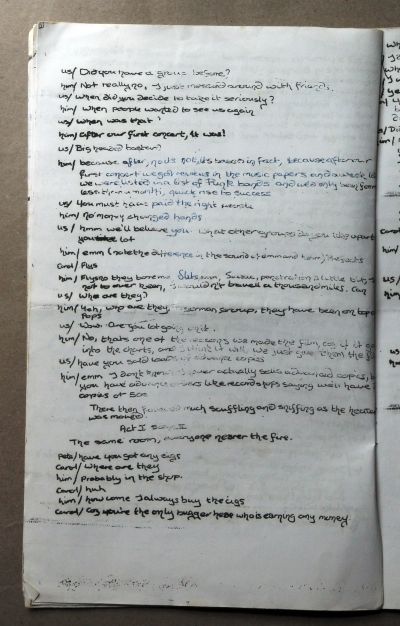 us/ Did you have a group before?
him/ Not really no, I just messed around with friends.
us/ when did you decide to take it seriously?
him/ when people wanted to see us again
us/ when was that?
him/ after our first concert, it was!
us/ Big headed bastard!
him/ because after, no its not, its true in fact, because after our
first concert we got reviews in the music papers and a week later
we were listed in a list of Punk bands and we'd only been formed
less than a month, quick rise to success
us/ You must have paid the right people
him/ No money changed hands
us/ hmm we'll believe you. what other groups do you like apart
lot
him/ emm (note the difference in the sound of emm and hmm)
Carol/ Flys
him/ Flys they bore me Slits emm, Siouxsie, penetration a little but
not to over keen, I wouldn't travel a thousand miles. Can
us/ Who are they?
him/ Yeh, who are they, german group, they have been on top of
pops
us/ Wow. Are you
him/ No, thats one of the reasons we made the film, cos if it gets
into the charts, and I think it will, we just give them the film
us/ have you sold loads of advance copies
him/ emm I don't think you ever actually sell advanced copies,
you have advance orders like record shops saying we'll have
copies of 500
There then followed much scuffling and sniffing as the heater
was moved.
Act I
The same room, everyone nearer the fire.
Pete/ have you got any cigs
Carol/ where are they
him/ Probably in the shop.
Carol/ huh
him/ how come I always buy the cigs
Carol/ Cos you're the only bugger here who is earning any money.